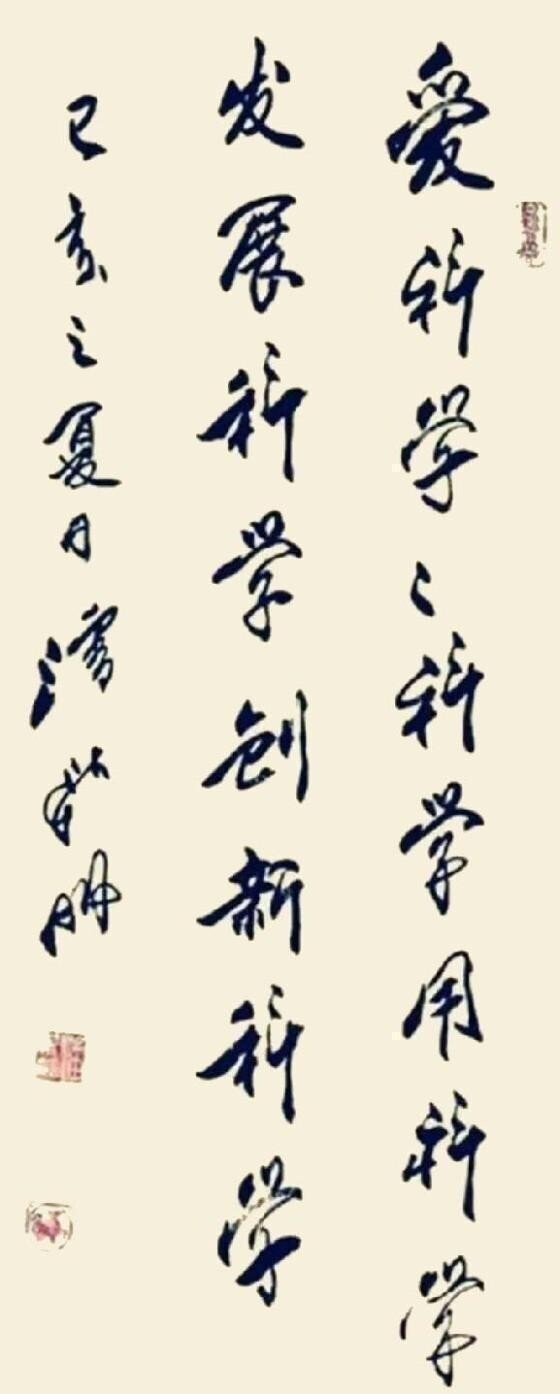 爱科学〻科学用科学
发展科学创新科学
己亥之夏月